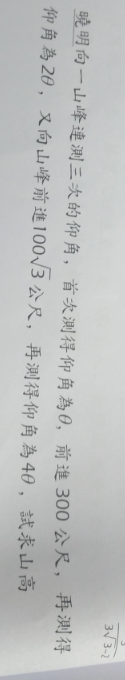 曉明向一山峰連測三次的仰角，首次測得仰角為θ，前進300公尺，再測得
仰角為2θ，又向山峰前進100√3公尺，再測得仰角為4θ，試求山高